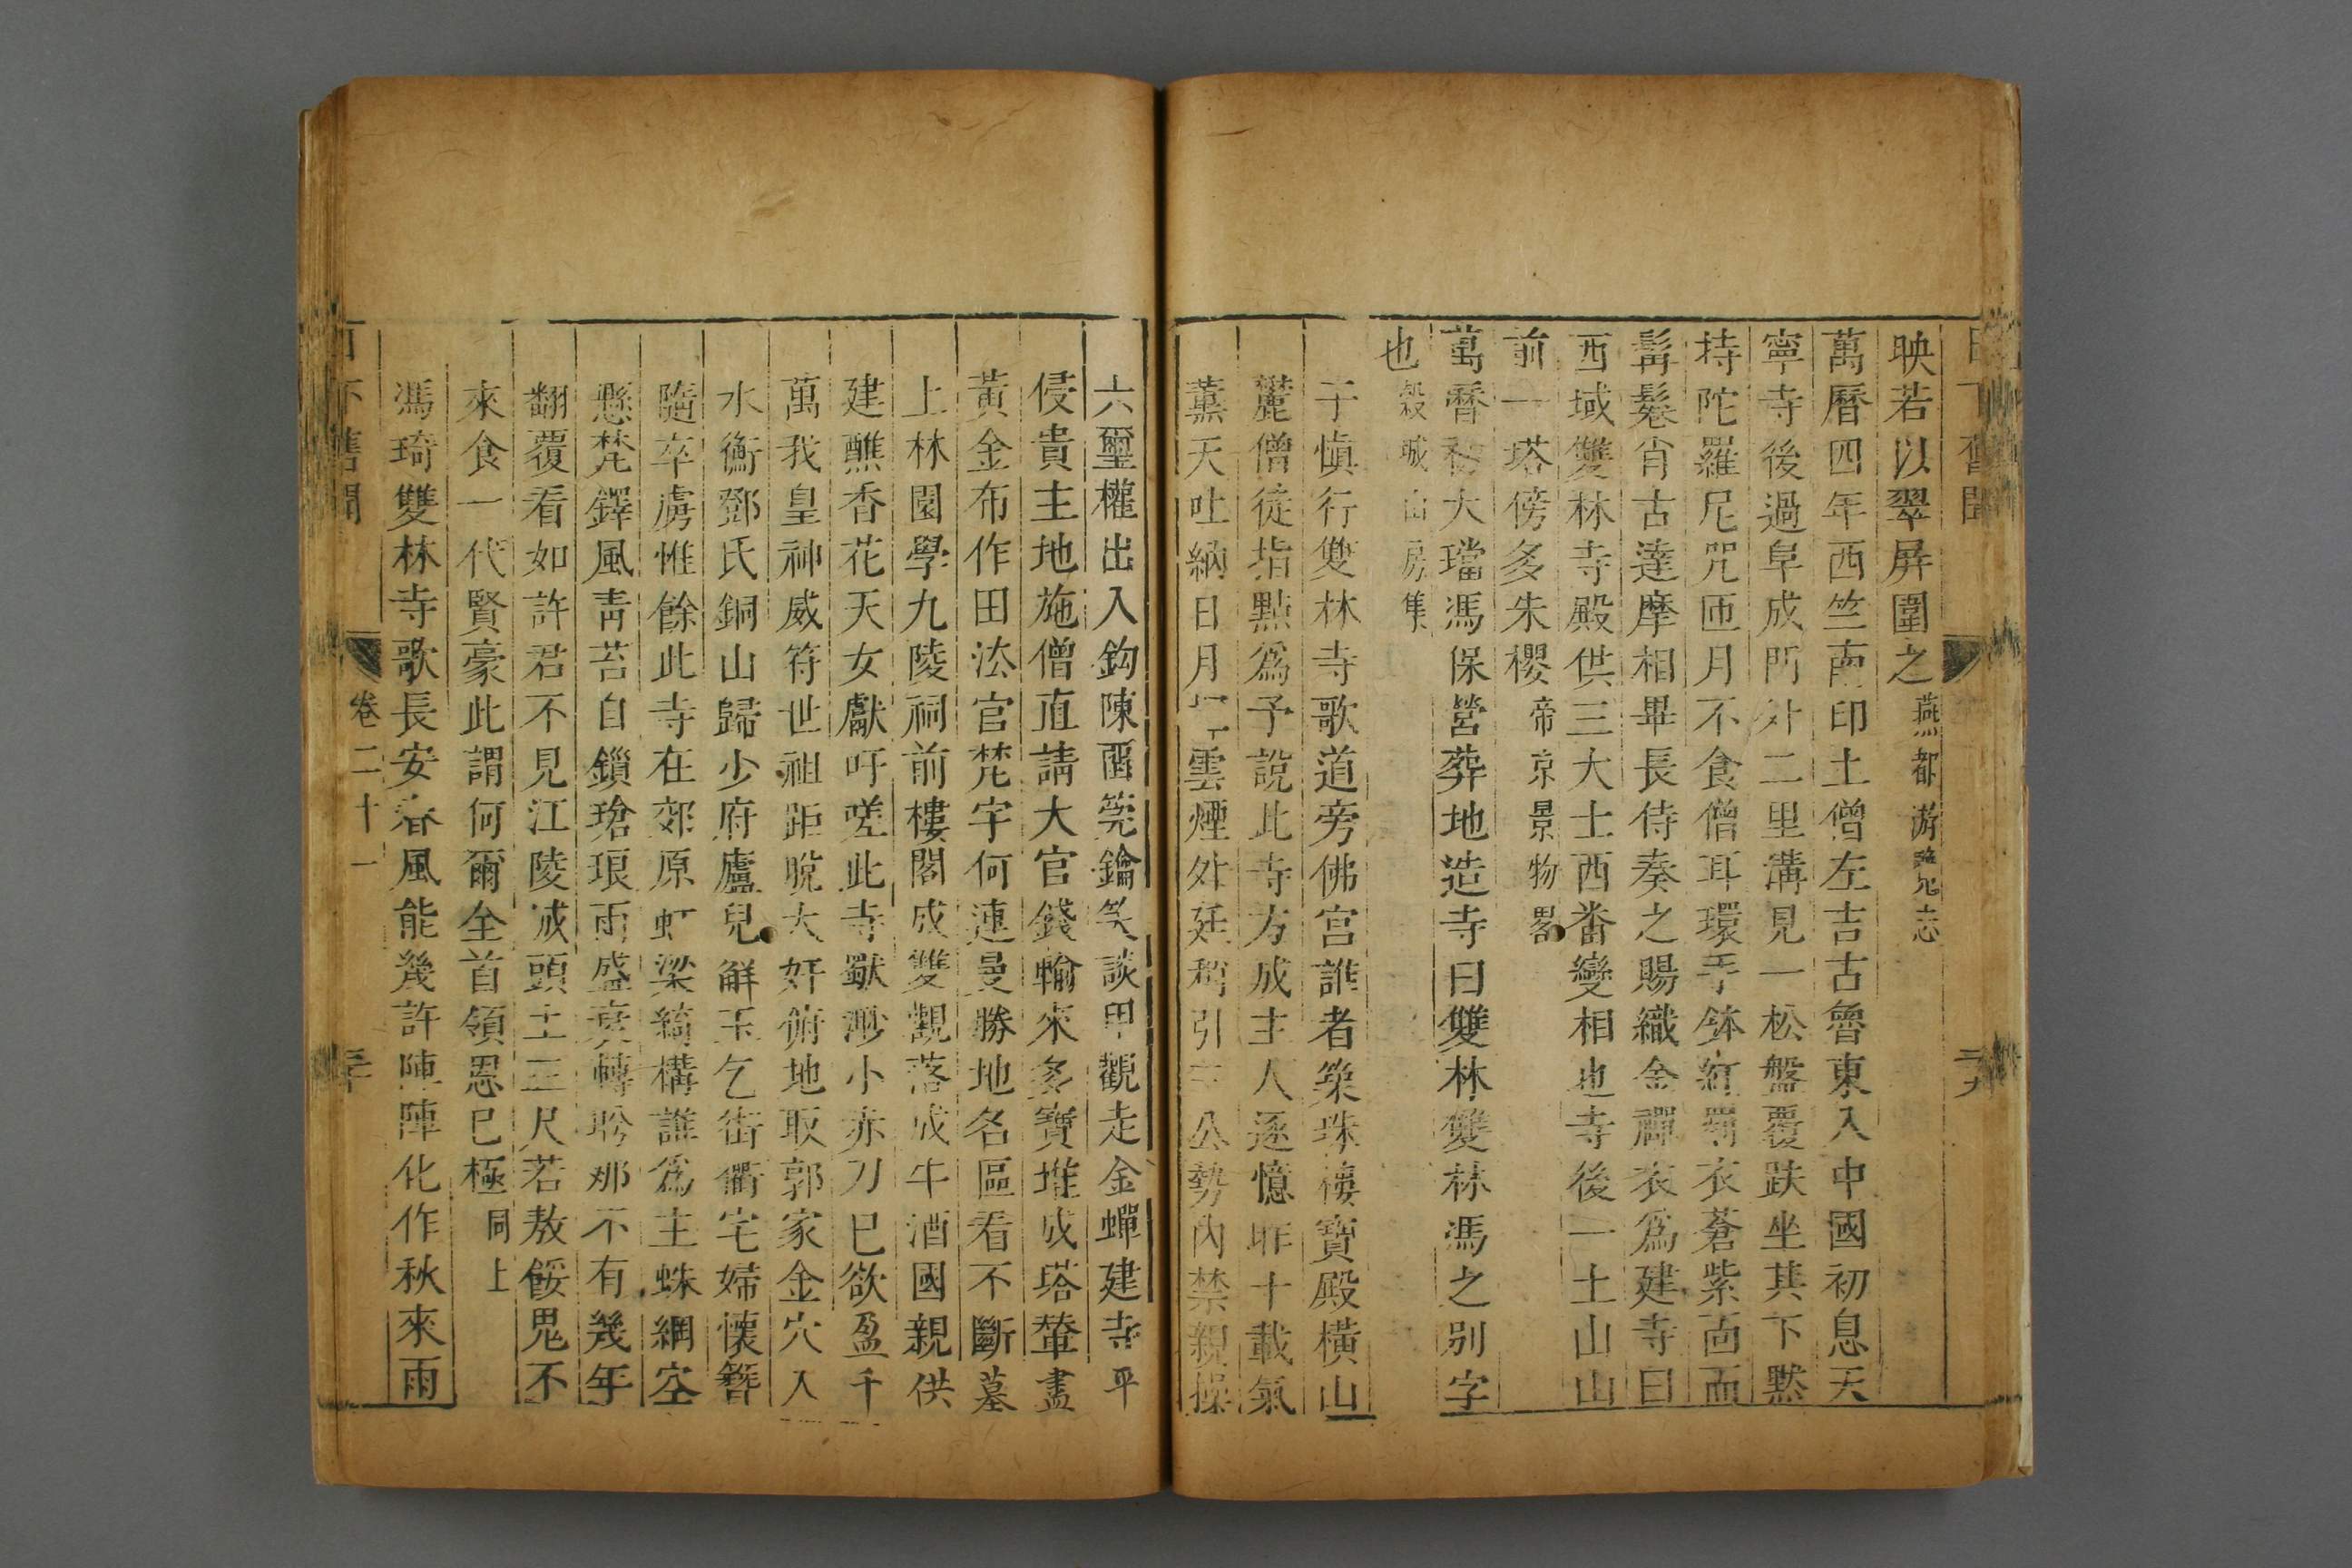 日下舊聞
二十九
映若以翠屏圍之燕都游覽志
萬曆四年西竺南印土僧左吉古魯東入中國初息天
寧寺後過阜成門外二里溝見一松盤覆趺坐其下默
持陀羅尼咒匝月不食僧耳環手鉢紅罽衣蒼紫面而
髯鬈肖古達摩相畢長侍奏之賜織金禪衣爲建寺曰
西域雙林寺殿供三大士西番變相也寺後一土山山
前一塔傍多朱櫻帝京景物畧
萬曆初大璫馮保營葬地造寺曰雙林雙林馮之別字
也穀城山房集
于慎行雙林寺歌道旁佛宫誰者築珠樓寶殿橫山
麓僧徒指點爲予說此寺方成主人逐憶昨十載氣
薰天吐納日月
雲煙外廷稱引三公勢內禁親操
六璽權出入鈎陳酉筦鑰笑談甲觀走金蟬建寺平
侵貴主地施僧直請大官錢輸來多寶堆成塔輦盡
黃金布作田法官梵宇何連曼勝地名區看不斷墓
上林園學九陵祠前樓閣成雙觀落成牛酒國親供
建醮香花天女獻吁嗟此寺獸渺小赤刀已欲盈千
萬我皇神威符世祖距脫大奸俯地取郭家金穴入
水衡鄧氏銅山歸少府廬兒解玉乞街衢宅婦懷簪
隨卒虜惟餘此寺在郊原虹梁綺構誰爲主蛛網空
懸梵鐸風青苔自鎖琅雨盛衰轉盻那不有幾年
翻覆看如許君不見江陵城頭土三尺若敖餒鬼不
來食一代賢豪此謂何爾全首領恩已極同上
馮琦雙林寺歌長安春風能幾許陣陣化作秋來雨
日下舊聞
卷二十一
三十